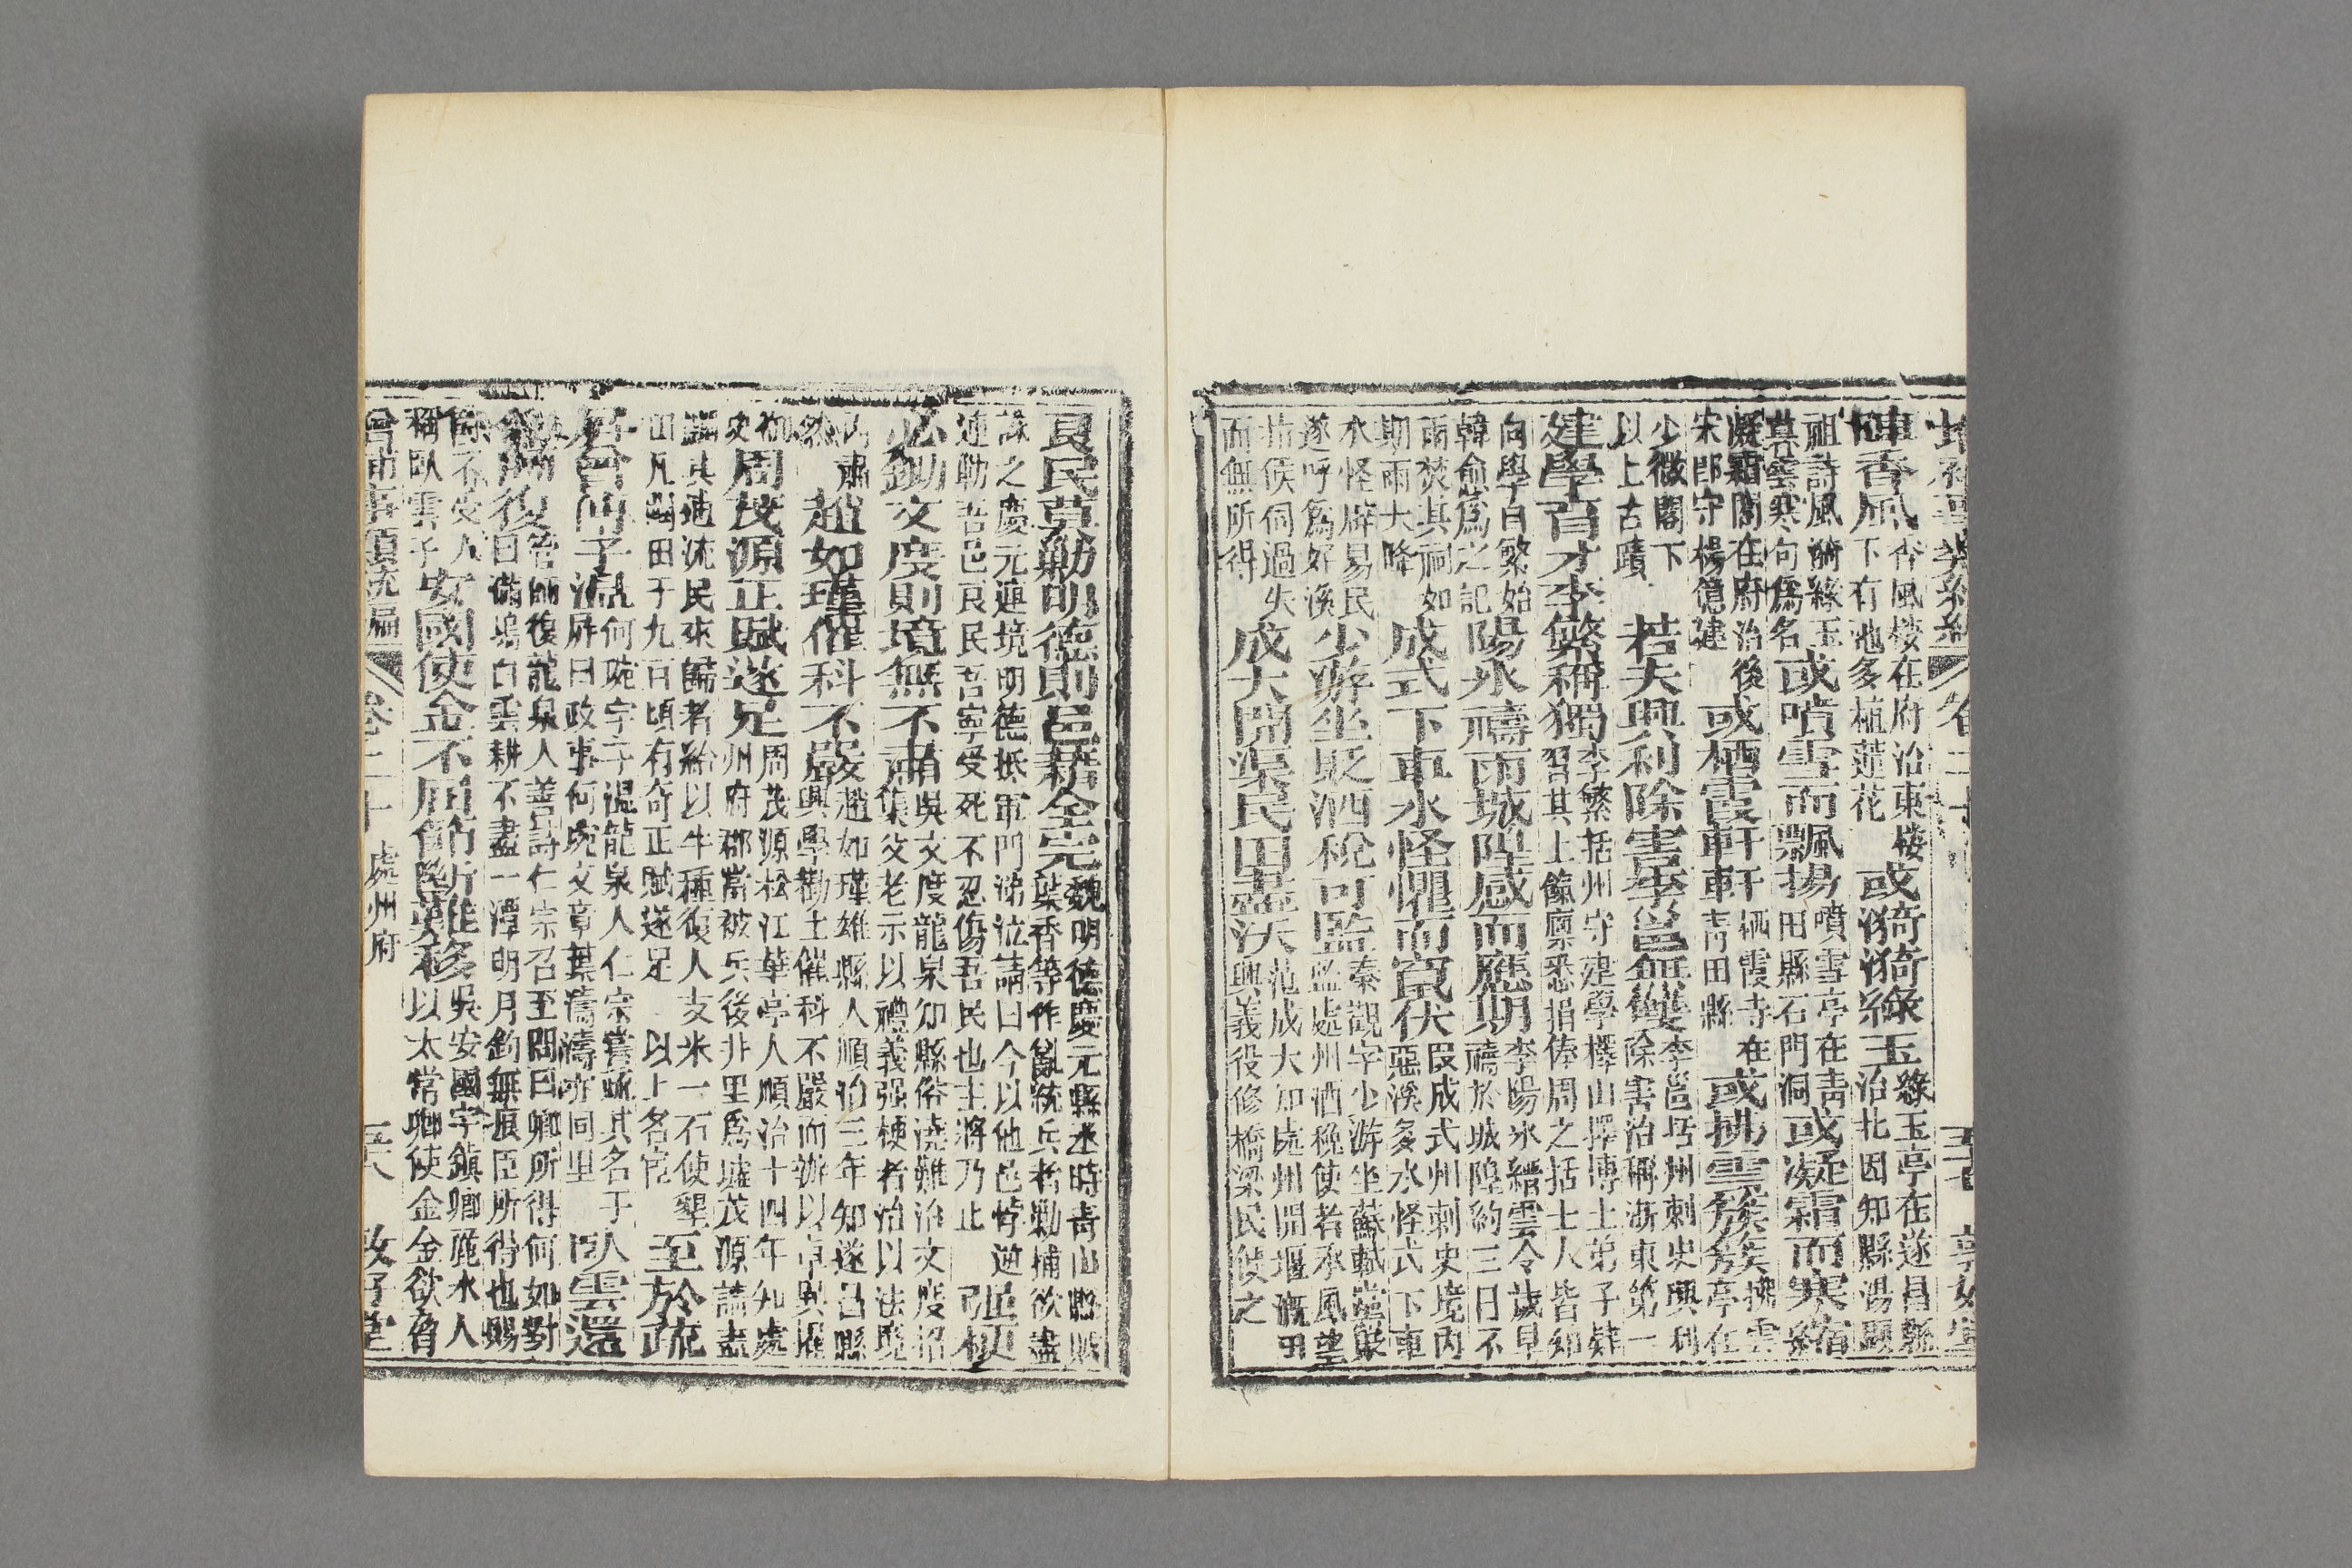 卷二十
陣香風香風楼在府治東楼下有池多植蓮花或漪漪綠玉綠玉亭在遂昌縣治北因知縣湯顯
祖詩風漪綠玉暮雲寒句爲名或噴雪而飄揚噴雪亭在青田縣石門洞或凝霜而寒
凝霜閣在府治後宋郎守楊億建或栖霞軒軒栖霞寺在青田縣或拂雲簇簇拂雲亭在
少微閣下以上古蹟若夫興利除害李邕無雙李邕括州刺史興利除害治稱浙東第一
建學育才李繁稱獨李繁括州守建學擇山擇博士弟子肄習其上餼廩悉捐俸周之括士人皆知
向學自繁始韓愈爲之記陽氷禱雨城隍感而應期李陽氷縉雲令歲旱禱於城隍約三日不
雨焚其祠如期雨大降成式下車水怪懼而竄伏段成式州刺史境內惡溪多水怪式下車
水怪辟易民遂呼爲好溪少游坐貶酒稅可監秦觀字少游坐蘇軾黨嚴監處州酒稅使者承風望
指候伺過失而無所得成大開渠民田盡沃范成大知處州開堰漑田興義役修橋梁民便之
良民莫勦明德則邑藉全完魏明德慶元縣丞時青山縣賊葉香等作亂統兵者勦捕欲盡
誅之慶元連境明德抵軍門涕泣請曰今以他邑悖逆連勦吾邑良民吾寧受死不忍傷吾民也主將乃止頑梗
必鋤文度則境無不肅吳文度龍泉知縣俗澆難治文度招集父老示以禮義强梗者治以法境
內肅然趙如瑾催科不嚴趙如瑾雄縣人順治三年知遂昌縣興學勸士催科不嚴而辦以卓異擢
御史周茂源正賦遂足周茂源松江華亭人順治十四年知處州府郡當被兵後井里爲墟茂源請盡
蠲其逋流民來歸者給以牛種復人支米一石使墾田凡闢田于九百頃有奇正賦遂足以上名宦至於疏
屏會何子溫何琬字子温龍泉人仁宗嘗疏其名于屛曰政事何琬文章葉濤濤亦同里臥雲還
管師復管師復龍泉人善詩仁宗召至問曰卿所得何如對曰滿塢白雲耕不盡一潭明月釣無痕臣所得也賜
除不受人稱臥雲子安國使金不屈節斷難移吳安國字鎮卿麗水人以太常卿使金金欲脅
卷二十 處州府 五八 敦好堂